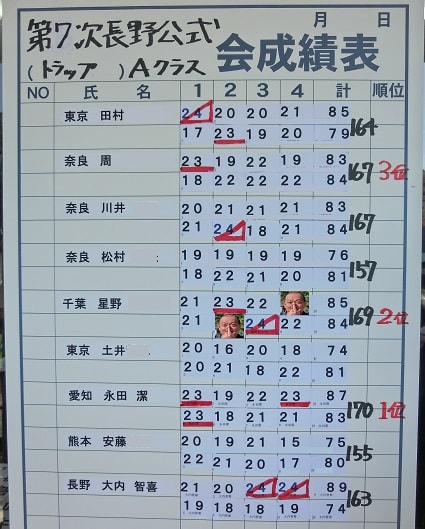 第7次長野公式
月 日
会成績表
(トラップ )Aクラス
NO 氏 名 1 2 3 4 計 順位
東京 田村 24 20 20 21 85
17 23 19 20 79 164
奈良 周 23 19 22 19 83
18 22 22 22 84 167 3位
奈良 川井 20 21 21 21 83
21 24 18 21 84 167
奈良 松村 19 19 19 19 76
18 22 21 20 81 157
千葉 星野 21 23 22 85
21 24 22 84 169 2位
東京 土井 20 16 20 18 74
20 21 18 22 81
愛知 永田 潔 23 19 22 23 87
23 18 21 21 83 170 1位
熊本 安藤 20 19 21 15 75
22 21 20 17 80 155
長野 大内 智喜 20 21 24 24 89
19 18 18 19 74 163